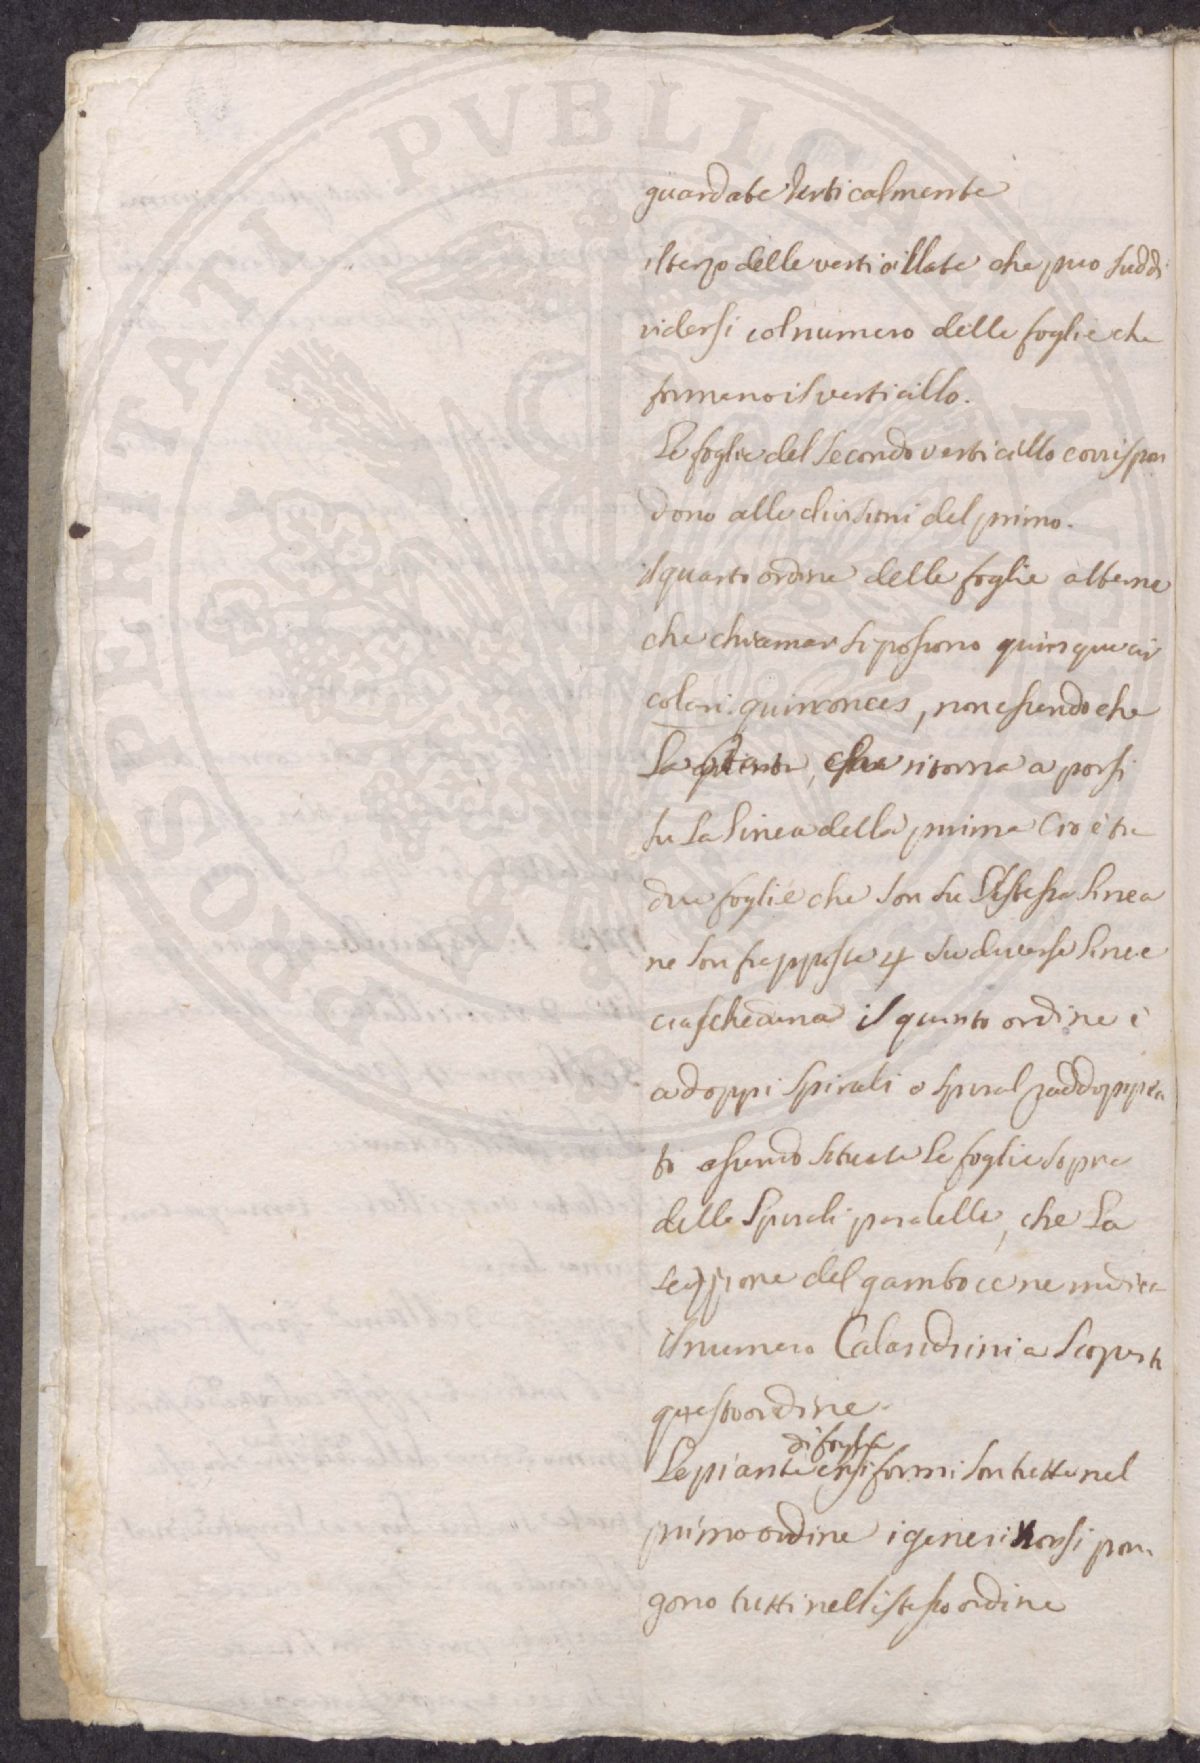 guardate verticalmente
il terzo delle verticillate che puo suddi
vidersi col numero delle foglie che
formano il verticillo.
Le foglie del secondo verticillo corrispon
dono alle divisioni del primo.
il quarto ordine delle foglie alterne
che chiamar si possono quinque cir
colari quinconces, non essendo che
La ritorna a porsi
su La linea della prima Cio è tra
due foglie che son su l'istessa linea
ne son frapposte 4 su diverse linee
ciascheduna il quinto ordine è
a doppi spirali o spiral raddoppia
to essendo situate Le foglie sopra
delle spirali paralelle, che La
sezzione del gambo ce ne indica
il numero Calandrini a scoperto
questo ordine.
di foglia
Le piante ensiformi son tutte nel
primo ordine i generi non si pon
gono tutti nell istesso ordine
PROSPERITATI PUBLICAE